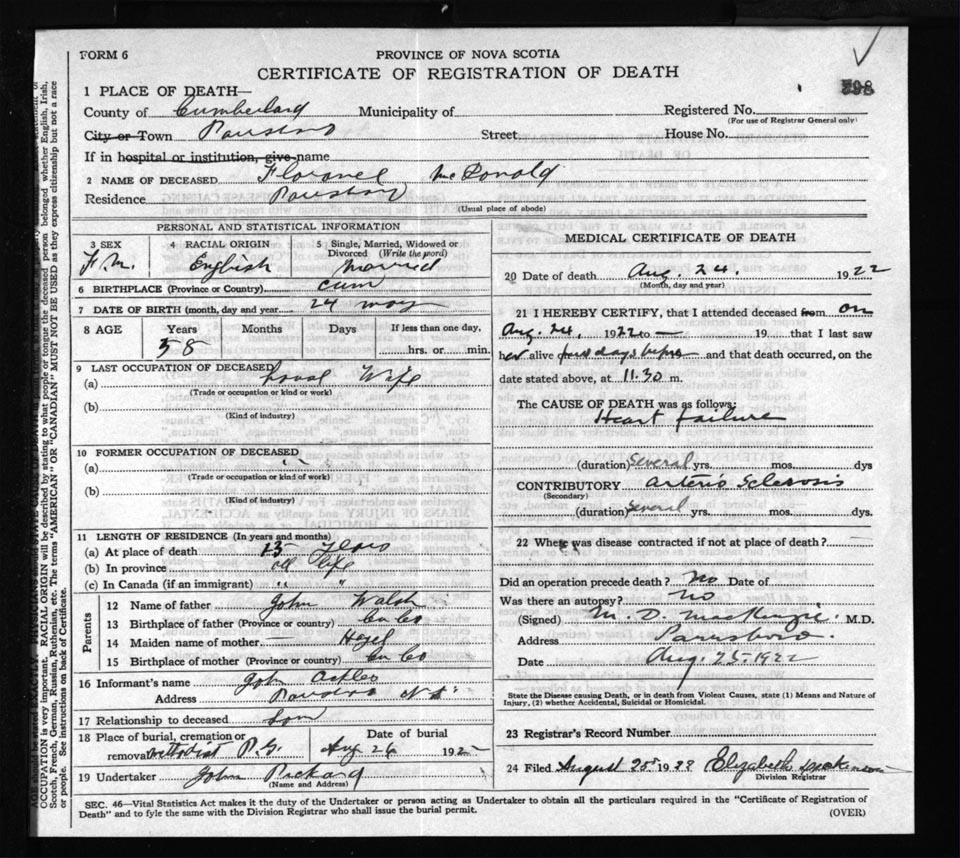 FORM 6
PROVINCE OF NOVA SCOTIA
CERTIFICATE OF REGISTRATION OF DEATH
1 PLACE OF DEATH—
798
County of Cumberland Municipality of Registered No.
(For use of Registrar General only)
City or Town Street House No.
If in hospital or institution, give name
2 NAME OF DECEASED McDonald
Residence
(Usual place of abode)
PERSONAL AND STATISTICAL INFORMATION
3 SEX 4 RACIAL ORIGIN 5 Single, Married, Widowed or Divorced (Write the word)
F.M. English Married
6 BIRTHPLACE (Province or Country) Cum
7 DATE OF BIRTH (month, day and year) 24 May
8 AGE Years Months Days If less than one day,
58 hrs. or min.
9 LAST OCCUPATION OF DECEASED
(a) Wife
(Trade or occupation or kind or work)
(b)
(Kind of industry)
10 FORMER OCCUPATION OF DECEASED
(a) " "
(Trade or occupation or kind of work)
(b)
(Kind of industry)
11 LENGTH OF RESIDENCE (In years and months)
(a) At place of death 13 years
(b) In province all life
(c) In Canada (if an immigrant) " "
Parents
12 Name of father John Walsh
13 Birthplace of father (Province or country) Cu Co
14 Maiden name of mother — Hazel
15 Birthplace of mother (Province or country) Cu Co
16 Informant's name John
Address N.S.
17 Relationship to deceased Son
18 Place of burial, cremation or removal Methodist P.G. Date of burial Aug 26 192
19 Undertaker John Rickard
(Name and Address)
MEDICAL CERTIFICATE OF DEATH
20 Date of death Aug. 24. 1922
(Month, day and year)
21 I HEREBY CERTIFY, that I attended deceased from on
Aug. 24, 1922 to — 19 that I last saw
her alive days before and that death occurred, on the
date stated above, at 11.30 m.
The CAUSE OF DEATH was as follows:
Heart failure
(duration) Several yrs. mos. dys
CONTRIBUTORY Arterio Sclerosis
(Secondary)
(duration) Several yrs. mos. dys.
22 Where was disease contracted if not at place of death?
Did an operation precede death? No Date of
Was there an autopsy? No
(Signed) M. D. MacKenzie M.D.
Address Parrsboro.
Date Aug. 25. 1922
State the Disease causing Death, or in death from Violent Causes, state (1) Means and Nature of
Injury, (2) whether Accidental, Suicidal or Homicidal.
23 Registrar's Record Number
24 Filed August 25th 1922 Elizabeth
Division Registrar
SEC. 46—Vital Statistics Act makes it the duty of the Undertaker or person acting as Undertaker to obtain all the particulars required in the "Certificate of Registration of
Death" and to fyle the same with the Division Registrar who shall issue the burial permit.
(OVER)
OCCUPATION is very important. RACIAL ORIGIN will be described by stating to what people or tongue the deceased person belonged whether English, Irish,
Scotch, French, German, Russian, Ruthenian, etc. The terms "AMERICAN" OR "CANADIAN" MUST NOT BE USED as they express citizenship but not a race
or people. See instructions on back of Certificate.